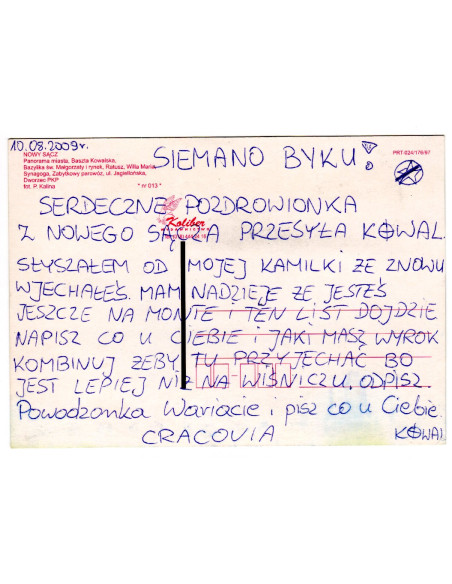 10.08.2009r.
NOWY SĄCZ
Panorama miasta, Baszta Kowalska,
Bazylika św. Małgorzaty i rynek, Ratusz, Willa Maria,
Synagoga, Zabytkowy parowóz, ul. Jagiellońska,
Dworzec PKP
fot. P. Kalina
* nr 013 *
PRT-024/176/97
SIEMANO BYKU!
SERDECZNE POZDROWIONKA
Koliber
Z NOWEGO SĄCZA PRZESYŁA KOWAL.
SŁYSZAŁEM OD MOJEJ KAMILKI ŻE ZNOWU
WJECHAŁEŚ. MAM NADZIEJE ŻE JESTEŚ
JESZCZE NA MONTE I TEN LIST DOJDZIE
NAPISZ CO U CIEBIE I JAKI MASZ WYROK
KOMBINUJ ŻEBY TU PRZYJECHAĆ BO
JEST LEPIEJ NIŻ NA WIŚNICZU. ODPISZ
Powodzonka Wariacie i pisz co u Ciebie.
CRACOVIA KOWAL